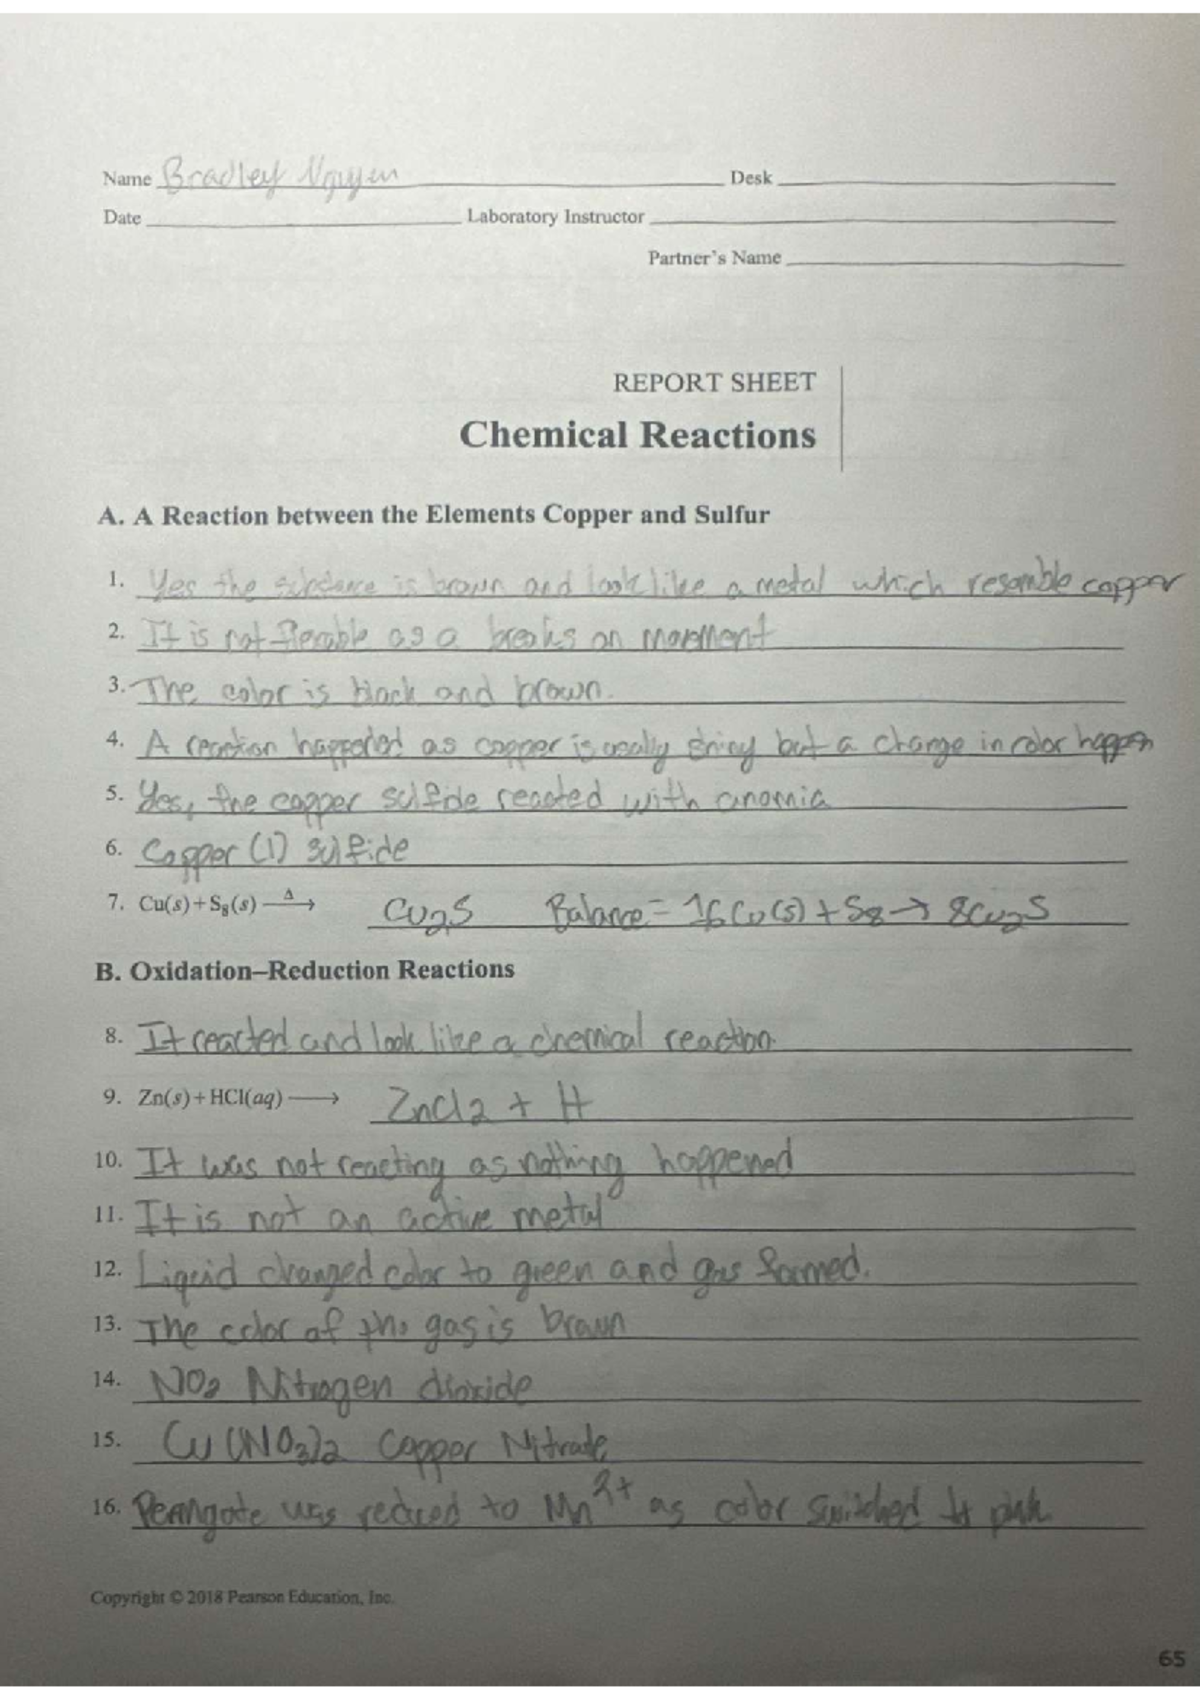 Name Bradley Nguyen Desk
Date Laboratory Instructor
Partner's Name
REPORT SHEET
Chemical Reactions
A. A Reaction between the Elements Copper and Sulfur
1. Yes the substance is brown and look like a metal which resemble copper
2. It is not as a breaks on movement
3. The color is black and brown.
4. A reaction happened as copper is usally shiny but a change in color happen
5. Yes, the copper sulfide reacted with anomia
6. Copper (1) sulfide
7. Cu(s)+S₈(s) —Δ→ Cu2S Balance = 16Cu(s) + S8 → 8Cu2S
B. Oxidation–Reduction Reactions
8. It reacted and look like a chemical reaction.
9. Zn(s)+HCl(aq) ⟶ ZnCl2 + H
10. It was not reacting as nothing happened
11. It is not an active metal
12. Liquid changed color to green and gas formed.
13. The color of the gas is brown
14. NO2 Nitrogen dioxide
15. Cu(NO3)2 Copper Nitrate
16. was reduced to Mn²⁺ as color switched to pink.
Copyright © 2018 Pearson Education, Inc.
65